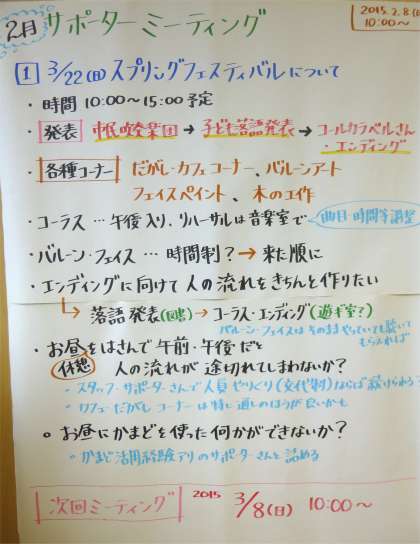 2月 サポーターミーティング
2015.2.8(日)
10:00～
1 3/22(日) スプリングフェスティバルについて
・時間 10:00～15:00 予定
・発表 市民吹奏楽団→子ども落語発表→コールカラベルさん
・エンディング
・各種コーナー だがし・カフェコーナー、バルーンアート
フェイスペイント、木の工作
・コーラス…午後入り、リハーサルは音楽室で 曲目・時間等調整
・バルーン・フェイス…時間制?→来た順に
・エンディングに向けて人の流れをきちんと作りたい
→落語発表(図書)→コーラス・エンディング(遊ギ室?)
バルーン・フェイスはそのままやっていても聴いて
もらえれば
・お昼をはさんで午前・午後だと
休憩 人の流れが途切れてしまわないか?
・スタッフ・サポーターさんで人員やりくり(交代制)ならば続けられる?
・カフェ・だがしコーナーは特に通しのほうが良いかも
○お昼にかまどを使った何かができないか?
○かまど活用経験アリのサポーターさんと詰める
次回ミーティング 2015 3/8(日) 10:00～